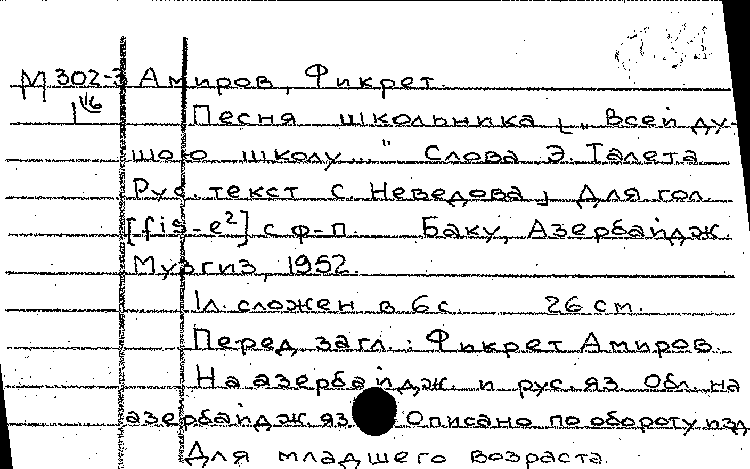 М 302-3 Амиров, Фикрет.
1 1/6 Песня школьника [„Всей ду-
шою школу..." Слова Э. Талета
Рус. текст С. Неведова] Для гол.
[fis-e²] с ф-п. Баку, Азербайдж.
Музгиз, 1952.
1л. сложен в 6 с. 26 см.
Перед загл.: Фикрет Амиров.
На азербайдж. и рус. яз. Обл. на
азербайдж. яз. Описано по обороту изд.
Для младшего возраста.